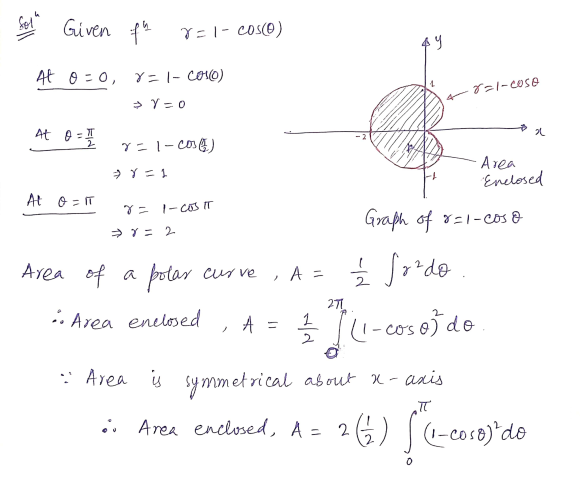 Solⁿ Given fⁿ r = 1 - cos(θ)
At θ = 0, r = 1 - cos(0)
⇒ r = 0
At θ = π/2 r = 1 - cos(π/2)
⇒ r = 1
At θ = π r = 1 - cos π
⇒ r = 2
y
1
r = 1 - cosθ
-2
x
-1
Area
Enclosed
Graph of r = 1 - cos θ
Area of a polar curve, A = 1/2 ∫ r² dθ.
∴ Area enclosed, A = 1/2 ∫₀^{2π} (1 - cos θ)² dθ.
∵ Area is symmetrical about x-axis
∴ Area enclosed, A = 2(1/2) ∫₀^π (1 - cosθ)² dθ